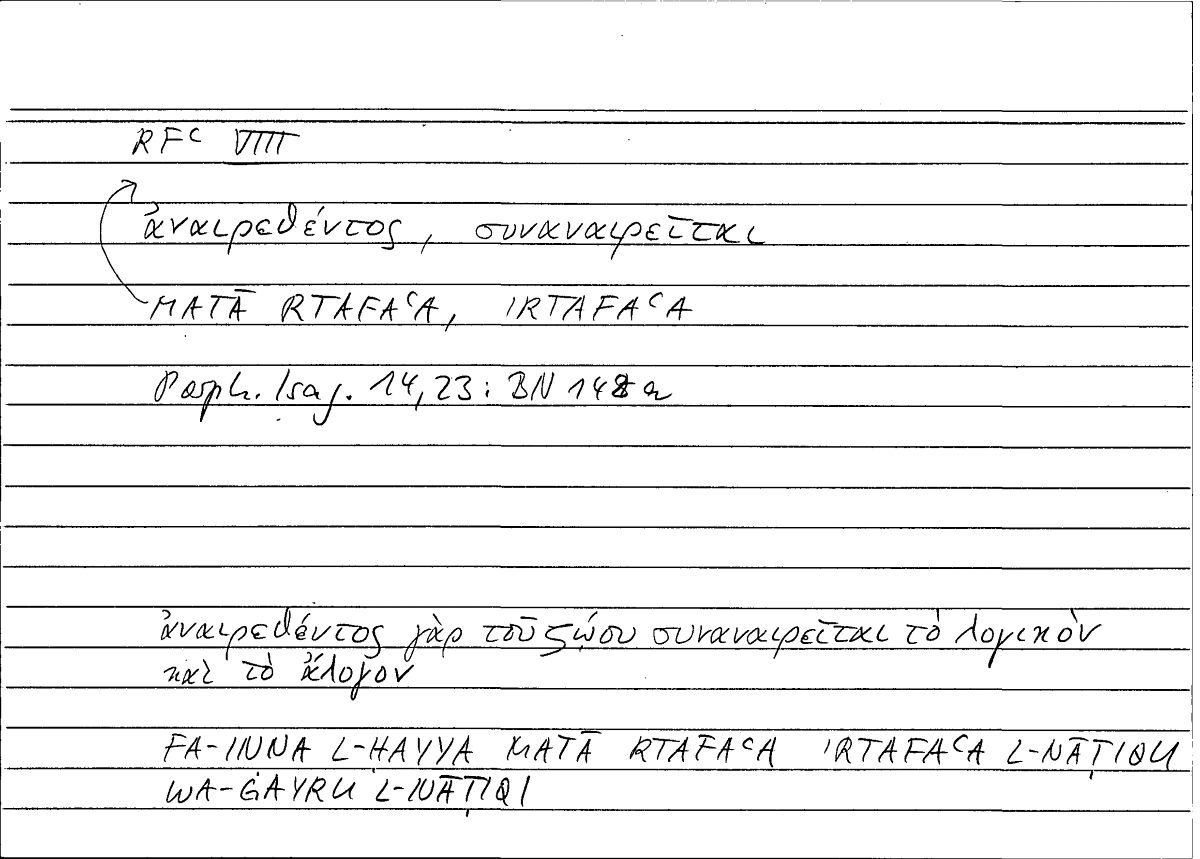 RFᶜ VIII
ἀναιρεθέντος, συναναιρεῖται
MATĀ RTAFAᶜA, IRTAFAᶜA
Porph. Isag. 14,23: BN 148a
ἀναιρεθέντος γὰρ τοῦ ζῴου συναναιρεῖται τὸ λογικὸν
καὶ τὸ ἄλογον
FA-INNA L-ḤAYYA MATĀ RTAFAᶜA 'RTAFAᶜA L-NĀṬIQU
WA-ĠAYRU L-NĀṬIQI